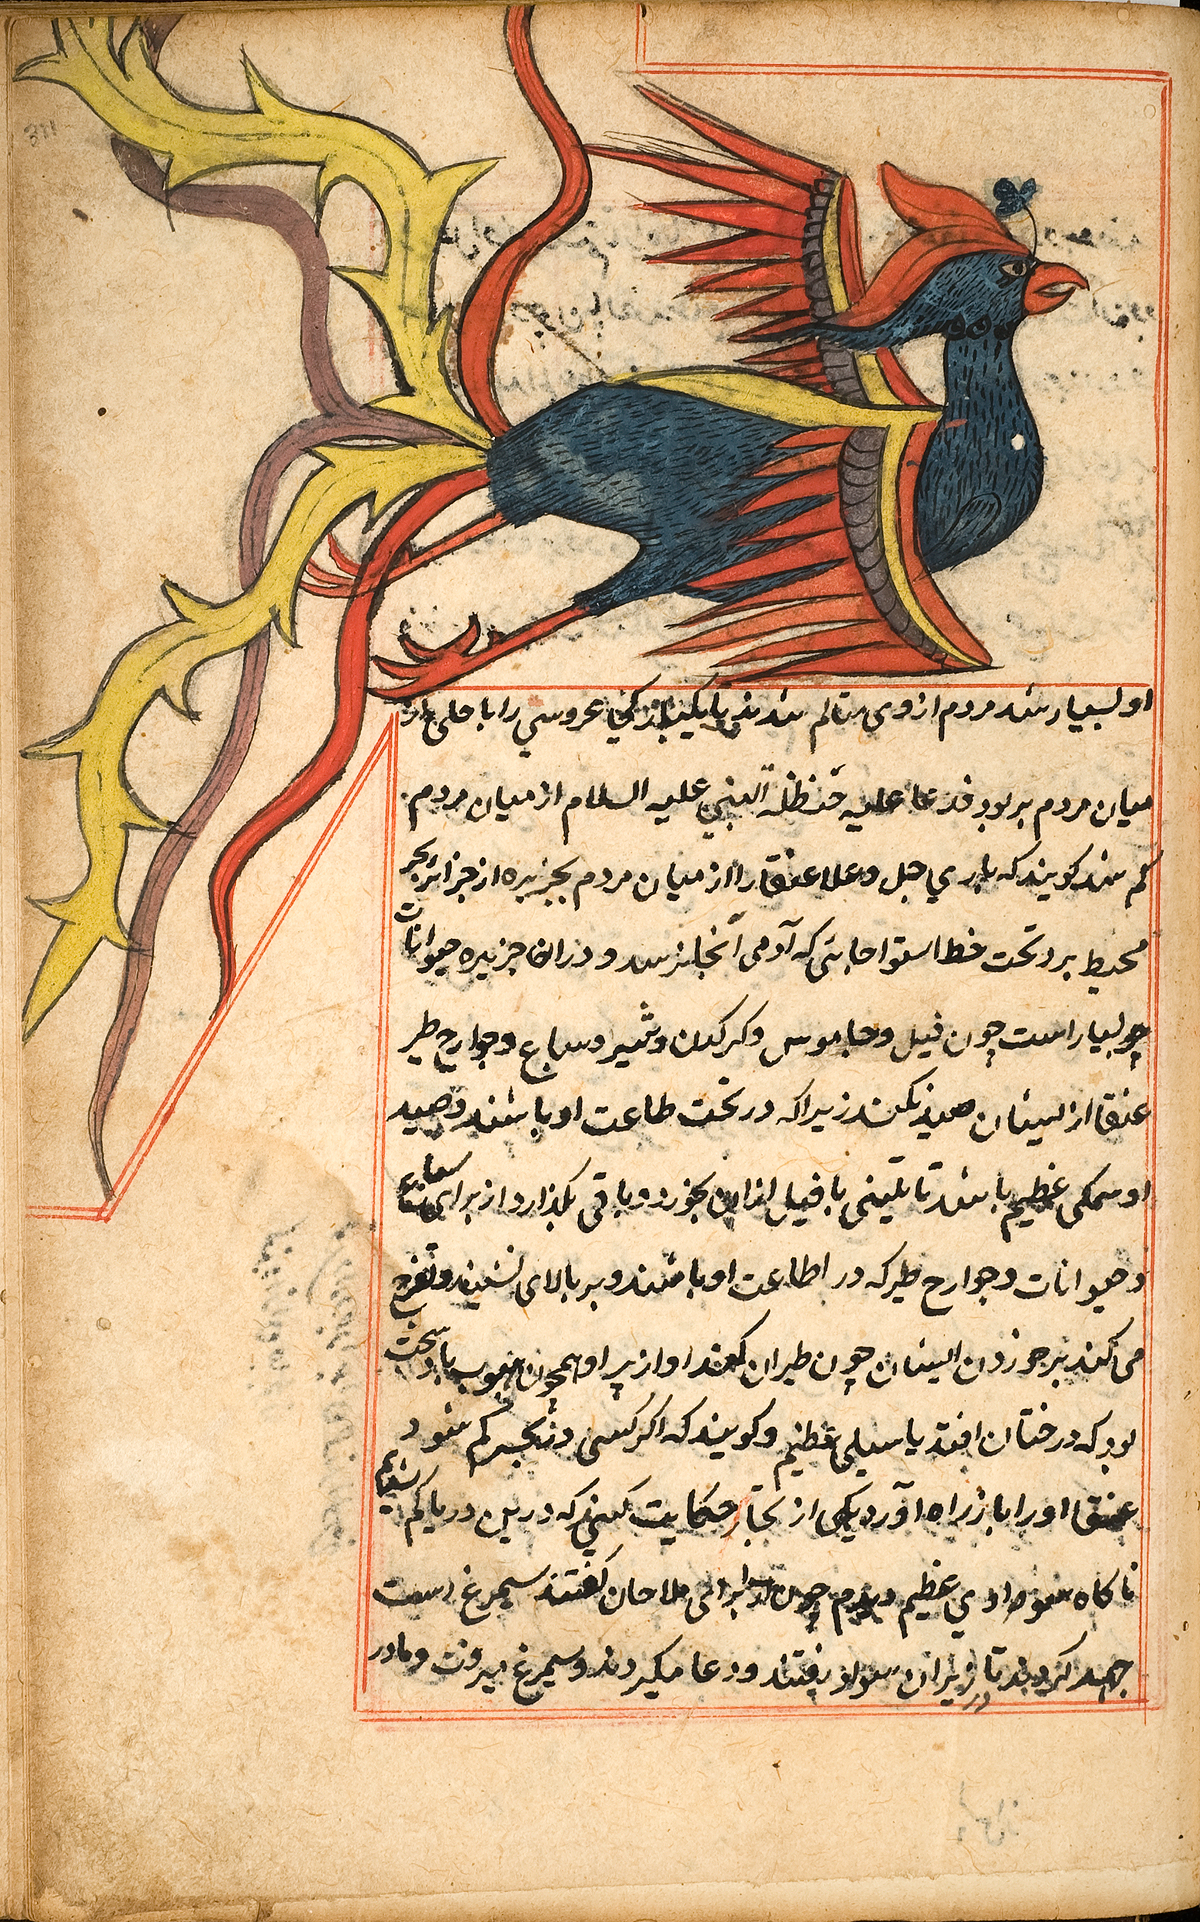 او بسیار شد مردم از وی متالم شدند تا یکبار کی عروسی را با حلی از
میان مردم بربود فدعا علیه حنظلة النبي علیه السلام از میان مردم
کم شد کویند که باری جل وعلا عنقا را از میان مردم بجزیره از جزائر بحر
محیط برد تحت خط استوا جایی که آدمی آنجا نرسد و دران جزیره حیوانات
بسیار است چون فیل و جاموس و کرکدن و شیر و سباع و جوارح طیر
عنقا از ایشان صید نکند زیرا که در تحت طاعت او باشند و صید
او سمکی عظیم باشد تا تنینی یا فیل ازان بخورد و باقی بکذارد از برای سباع
و حیوانات و جوارح طیر که در اطاعت او باشند و بر بالای نشیند و تفرج
می کند بر خوردن ایشان چون طیران کند اواز پر او همچون هبوب باد سخت
بود که درختان افتد یا سیلی عظیم و کویند که اکر کسی در بحر کم شود
عنقا او را باز راه آورد یکی از تجار حکایت کند که درین دریا کم شدیم
ناکاه سوادی عظیم دیدم چون ابر ملاحان کفتند سیمرغ است
جهد کردند تا در زیر آن سواد رفتند و دعا میکردند و سیمرغ میرفت و ما در
311